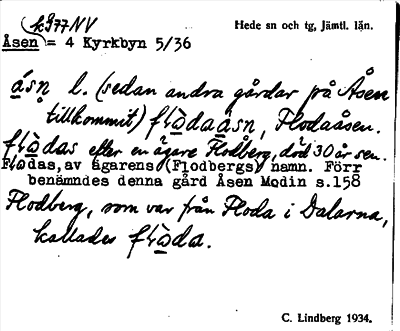 k977NV
Hede sn och tg, Jämtl. län.
Åsen = 4 Kyrkbyn 5/36
åsn l. (sedan andra gårdar på Åsen
tillkommit) flådaåsn, Flodaåsen.
flådas efter en ägare Flodberg, död 30 år sen.
Flådas, av ägarens (Flodbergs) namn. Förr
benämndes denna gård Åsen Modin s.158
Flodberg, som var från Floda i Dalarna,
kallades flåda.
C. Lindberg 1934.